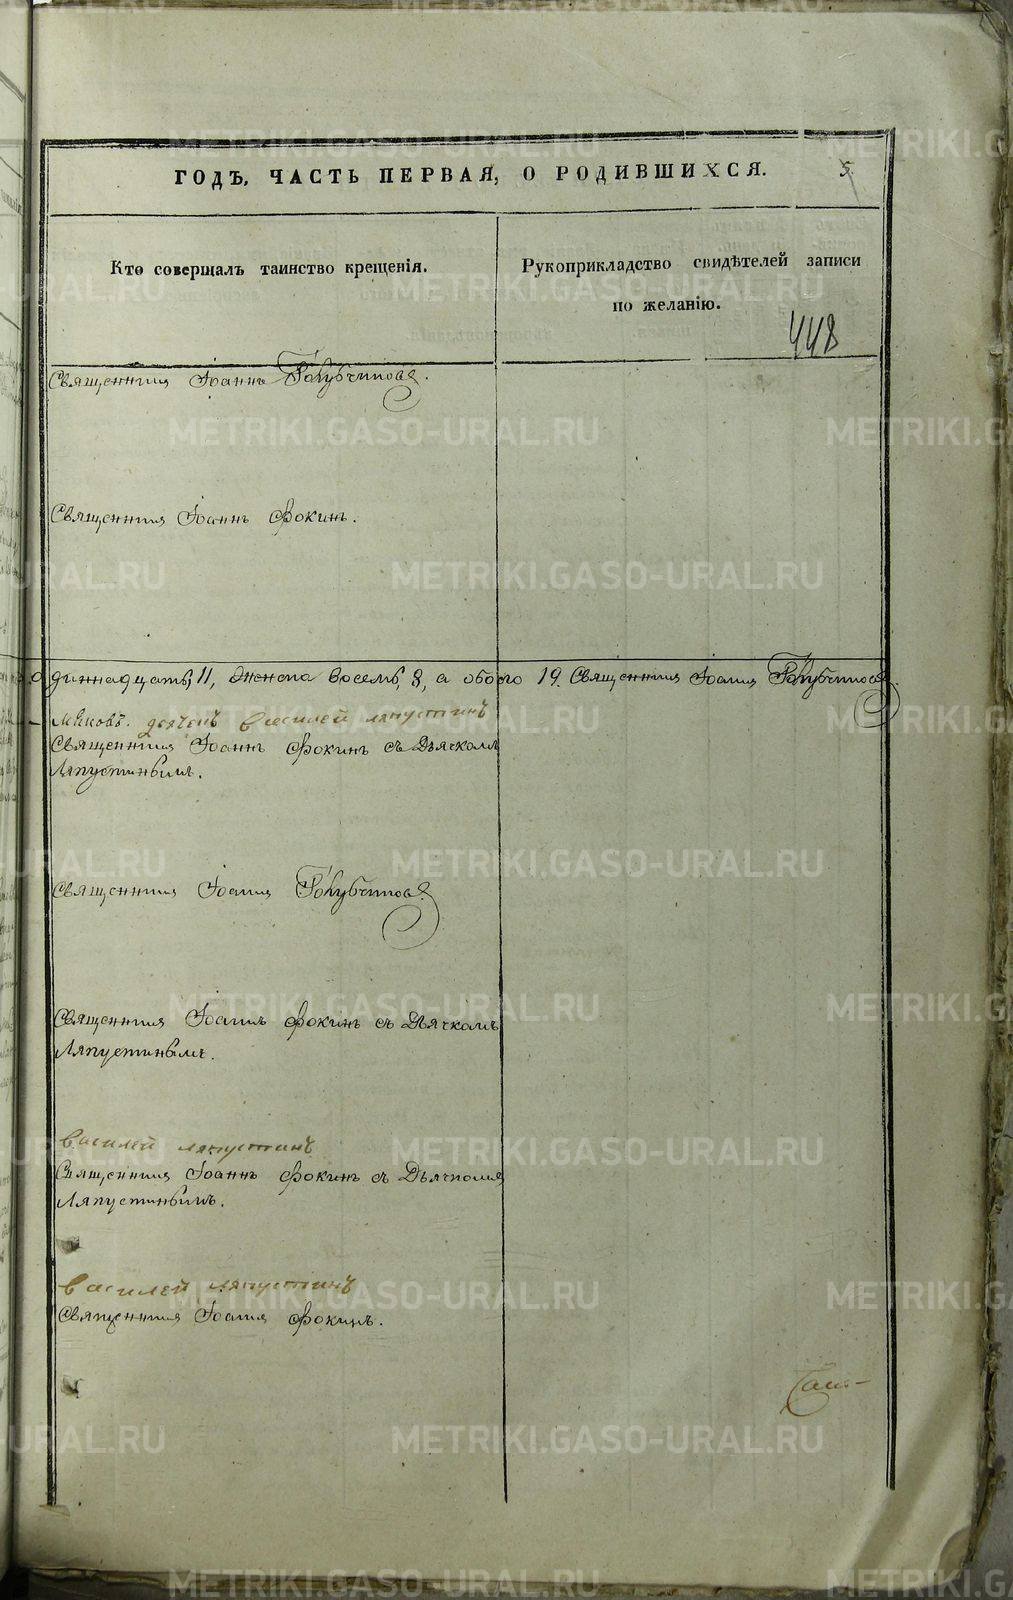 ГОДЪ, ЧАСТЬ ПЕРВАЯ, О РОДИВШИХСЯ. 5.
Кто совершалъ таинство крещенія.
Рукоприкладство свидѣтелей записи
по желанію.
448
Священникъ Іоаннъ
Священникъ Іоаннъ Фокинъ.
диннадцать, 11, женска восемь, 8, а обоего 19. Священникъ Іоаннъ
василей ляпустинъ
Священникъ Іоаннъ Фокинъ съ Дьячкомъ
Ляпустинымъ.
Священникъ Іоаннъ
Священникъ Іоаннъ Фокинъ съ Дьячкомъ
Ляпустинымъ.
василей ляпустинъ
Священникъ Іоаннъ Фокинъ съ Дьячкомъ
Ляпустинымъ.
василей ляпустинъ
Священникъ Іоаннъ Фокинъ.
METRIKI.GASO-URAL.RU